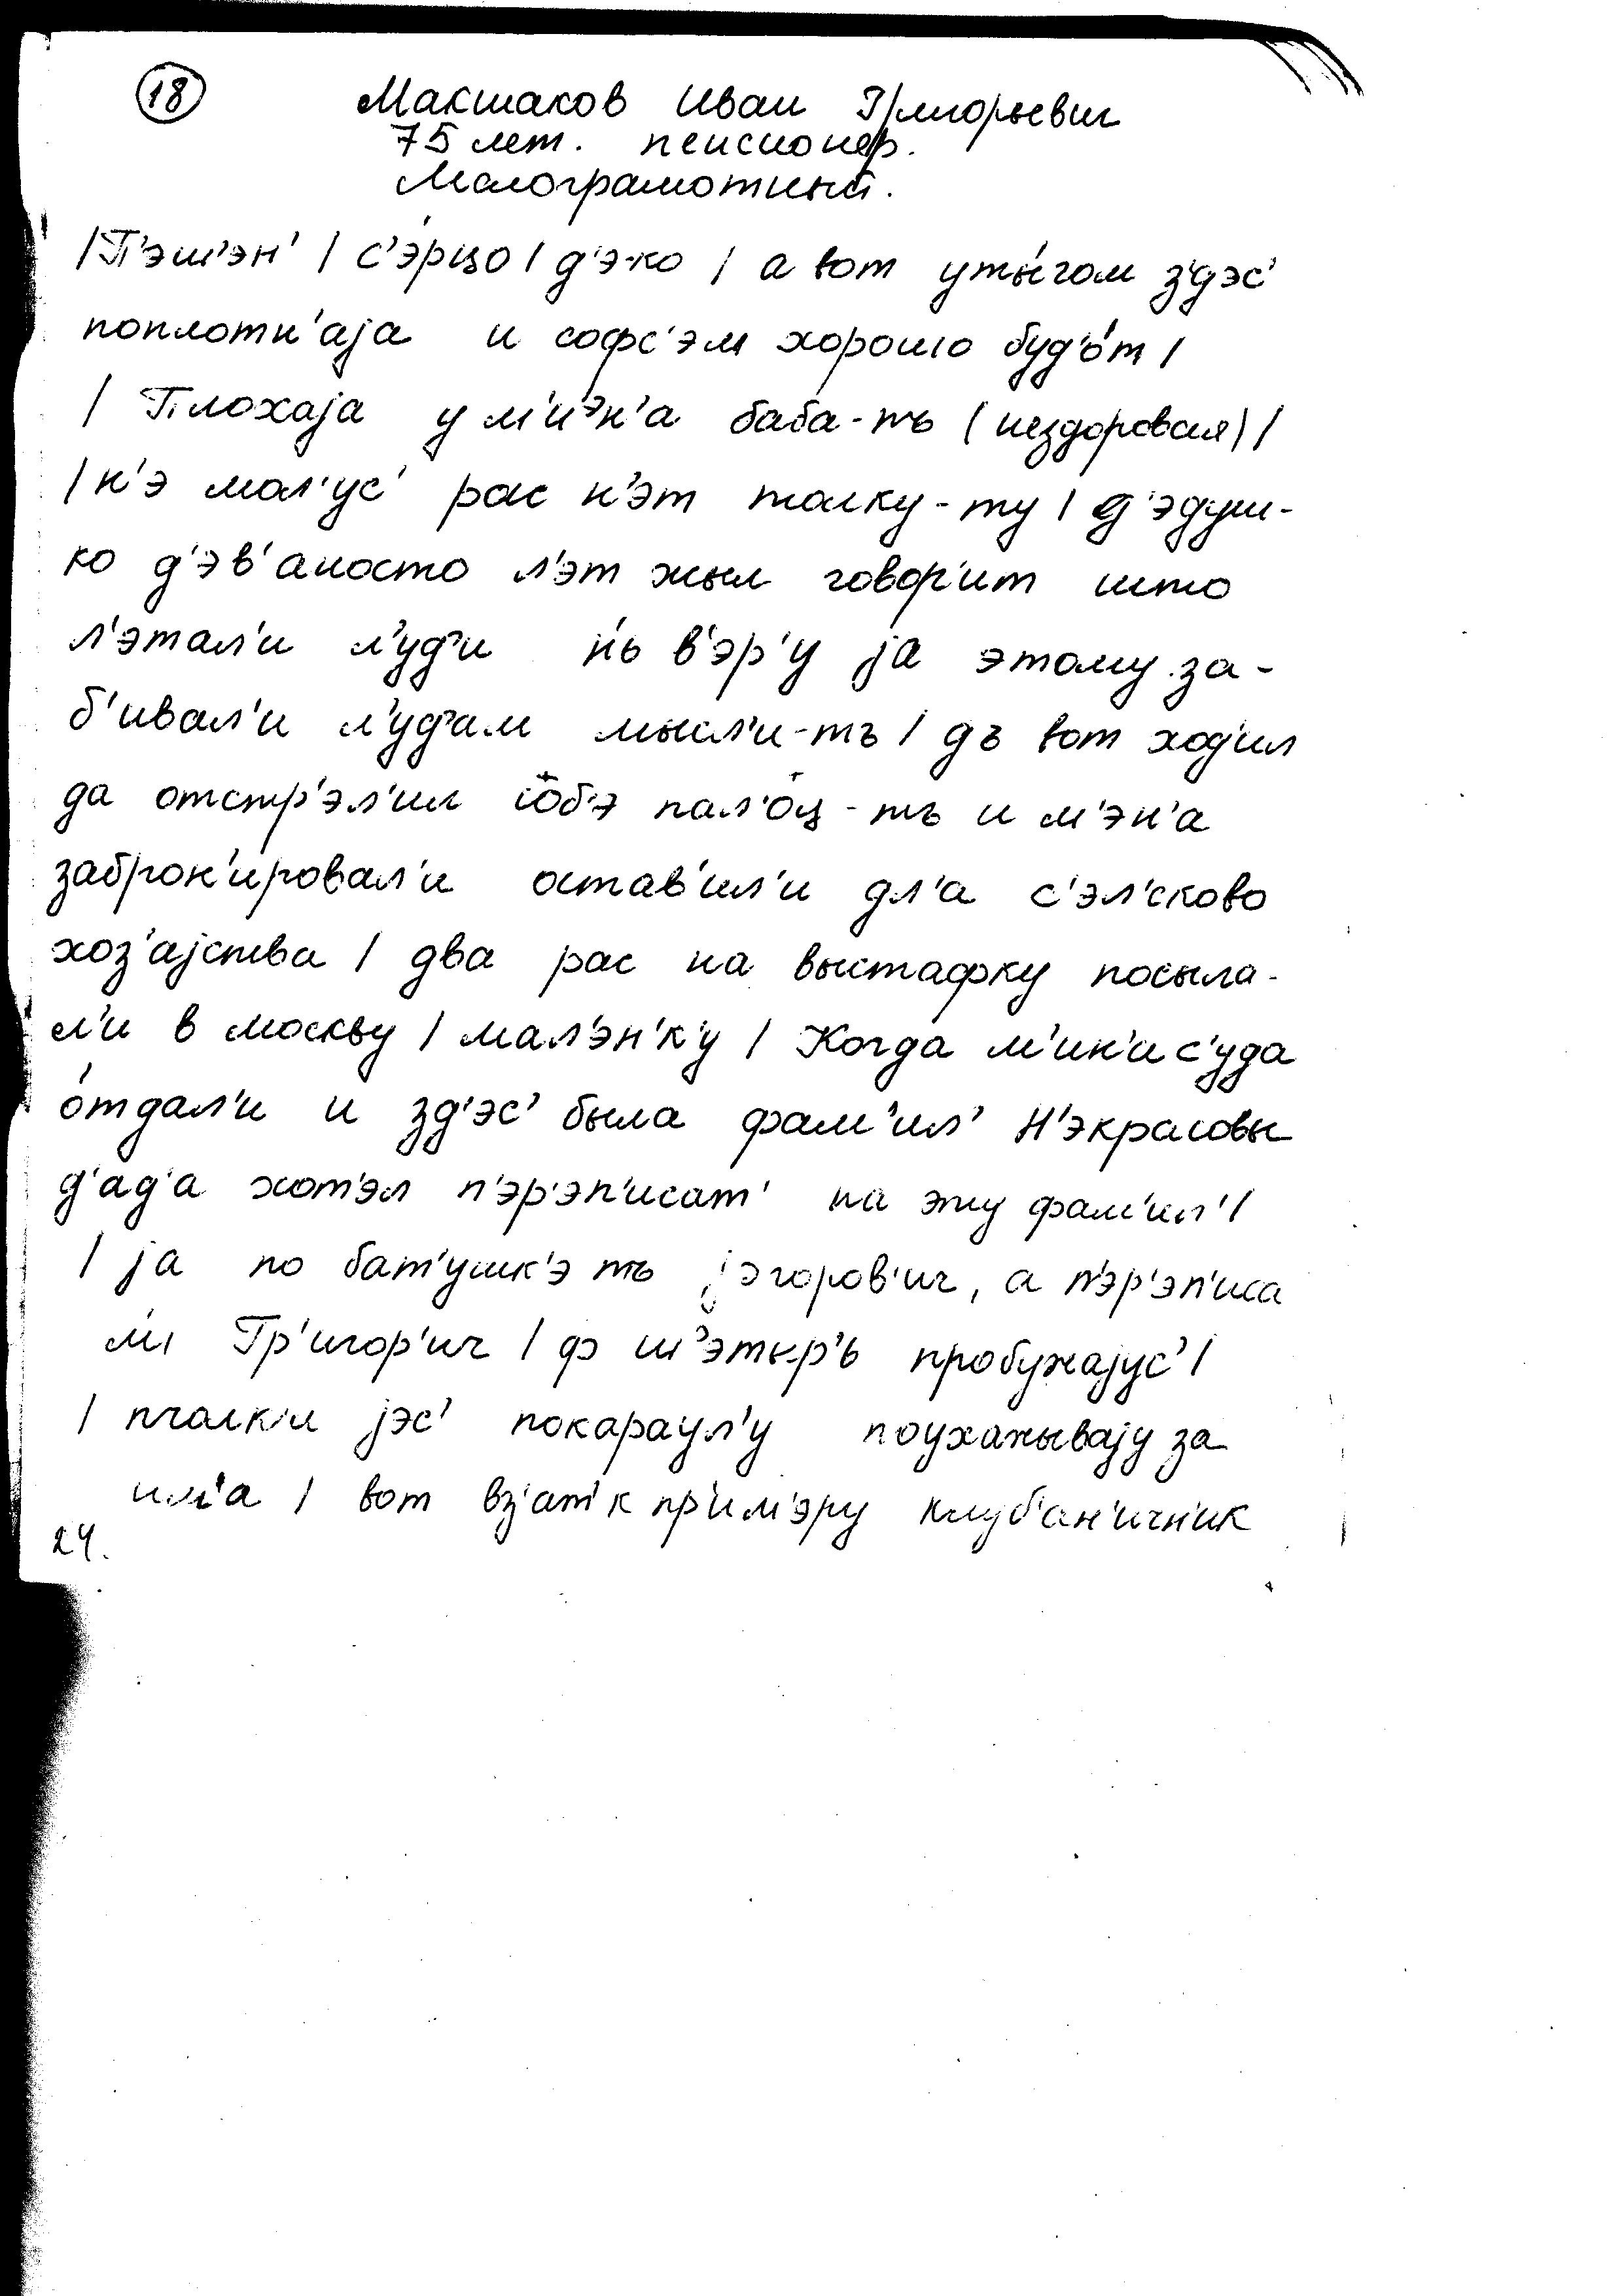 18 Макшаков Иван Григорьевич
75 лет. пенсионер.
Малограмотный.
/П'эш'эн' / с'э́рцо / д'э-ко / а вот уты́гом з'д'эс'
поплотн'аjа и софс'эм хорошо буд'о́т /
/ Плохаjа у м'иэн'а баба-тъ (нездоровая) /
/ н'э мал'ус' рас н'эт толку-ту / д'эдуш-
ко д'эв'аносто л'эт жыл говор'ит што
л'этал'и л'уд'и н'ь в'эр'у jа этому за-
б'ивал'и л'уд'ам мысл'и-тъ / дъ вот ход'ил
да отстр'эл'ил об'э пал'оц-тъ и м'эн'а
заброн'ировал'и остав'ил'и дл'а с'эл'сково
хоз'аjства / два рас на выстафку посыла-
л'и в москву / мал'эн'к'у / Когда м'ин'и с'уда
о́тдал'и и зд'эс' была фам'ил' Н'экрасовы
д'ад'а хот'эл п'эр'эп'исат' на эту фам'ил' /
/ jа по бат'ушк'э тъ jэгоров'ич, а п'эр'эп'иса
л'и Гр'игор'ич / ф ш'этыр'ь пробужаjус' /
/ пчолк'и jэс' покараул'у поухажываjу за
им'а / вот вз'ат' к пр'им'эру клуб'ан'ичн'ик
24.